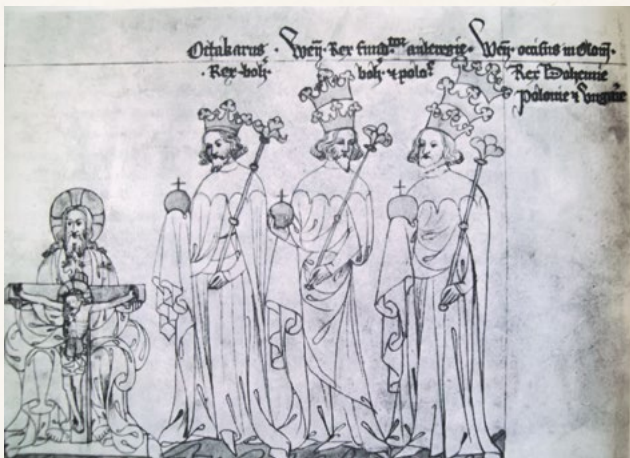 Ottakarus ·
· Rex boh·
Weñ· Rex fundᵗᵒʳ auleregie·
boh· ⁊ polo·
Weñ· occisus in Olom·
Rex Bohemie
Polonie ⁊ Vngarie